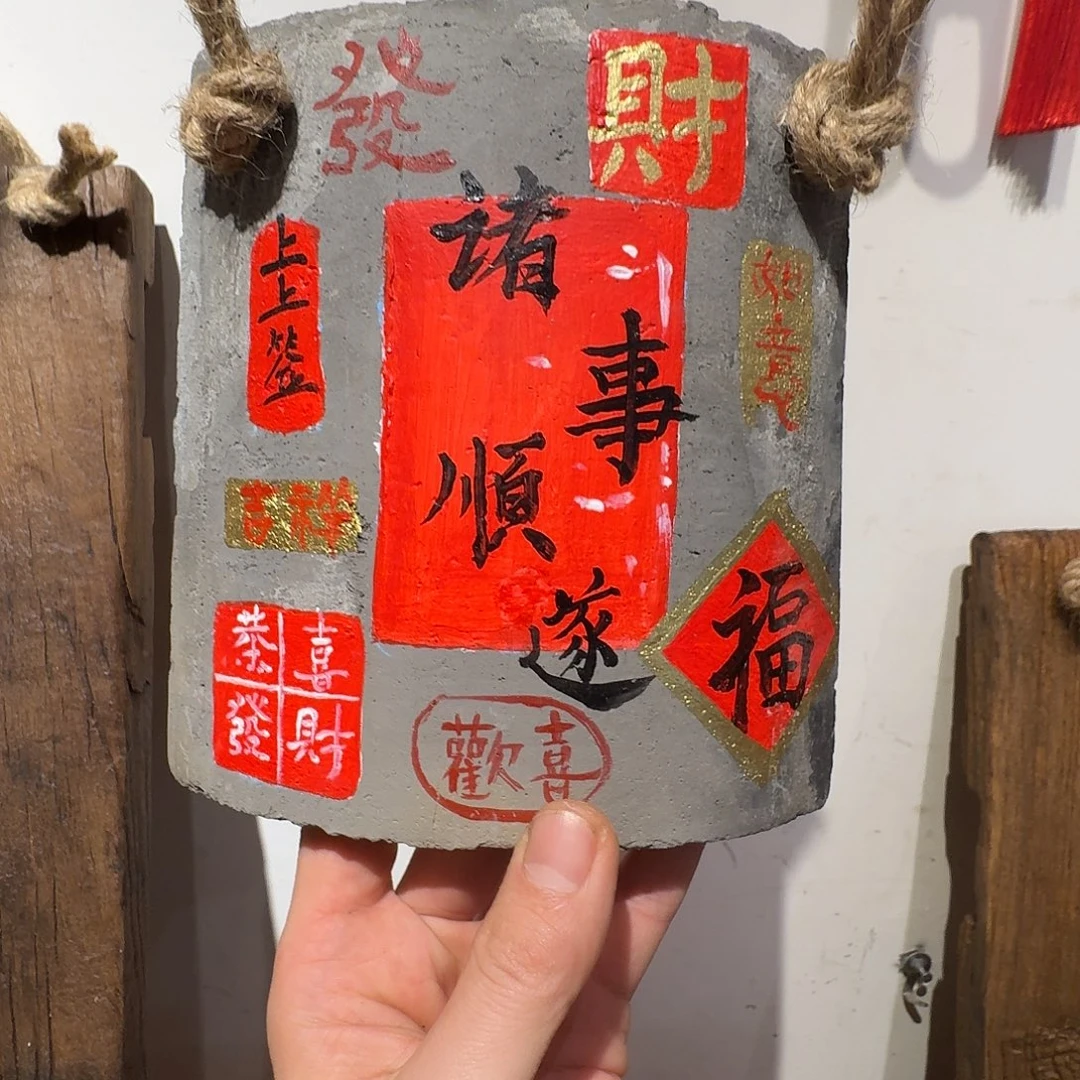 發
財
上上签
諸事順遂
如意
吉祥
福
恭喜
發財
歡喜